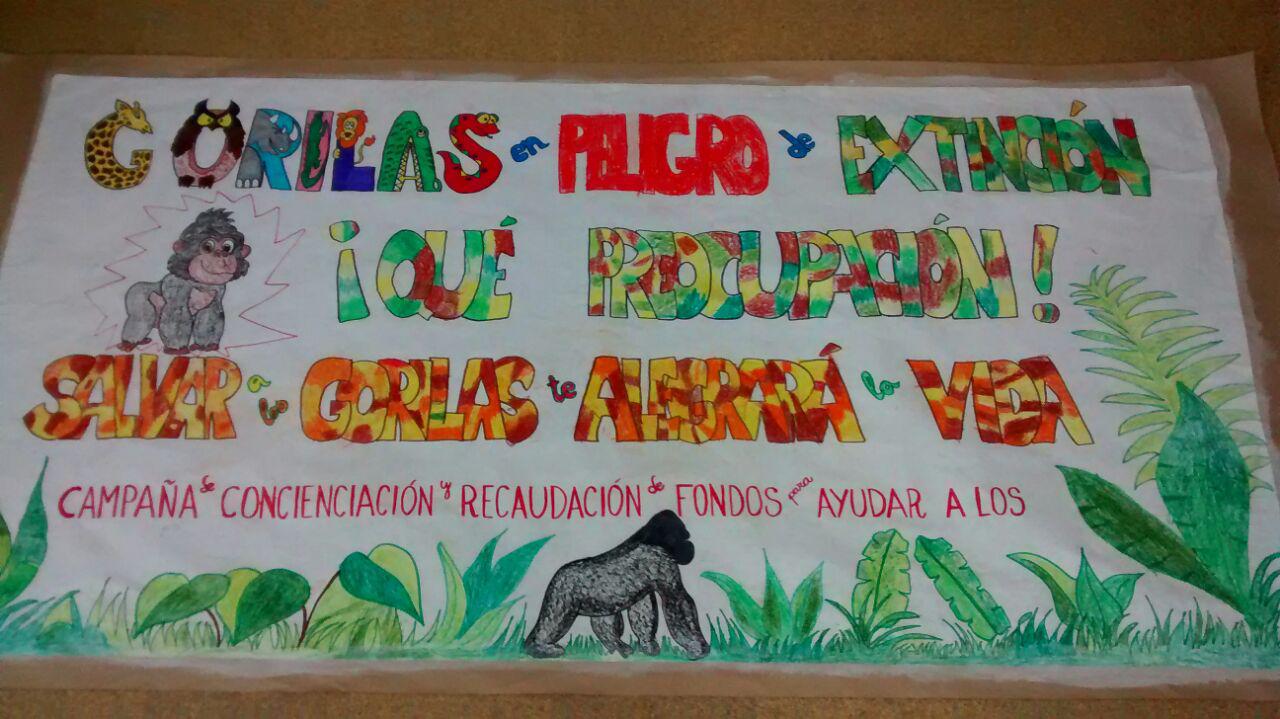 GORILAS en PELIGRO de EXTINCIÓN
¡QUÉ PREOCUPACIÓN!
SALVAR a lo GORILAS te ALEGRARÁ la VIDA
CAMPAÑA de CONCIENCIACIÓN y RECAUDACIÓN de FONDOS para AYUDAR A LOS